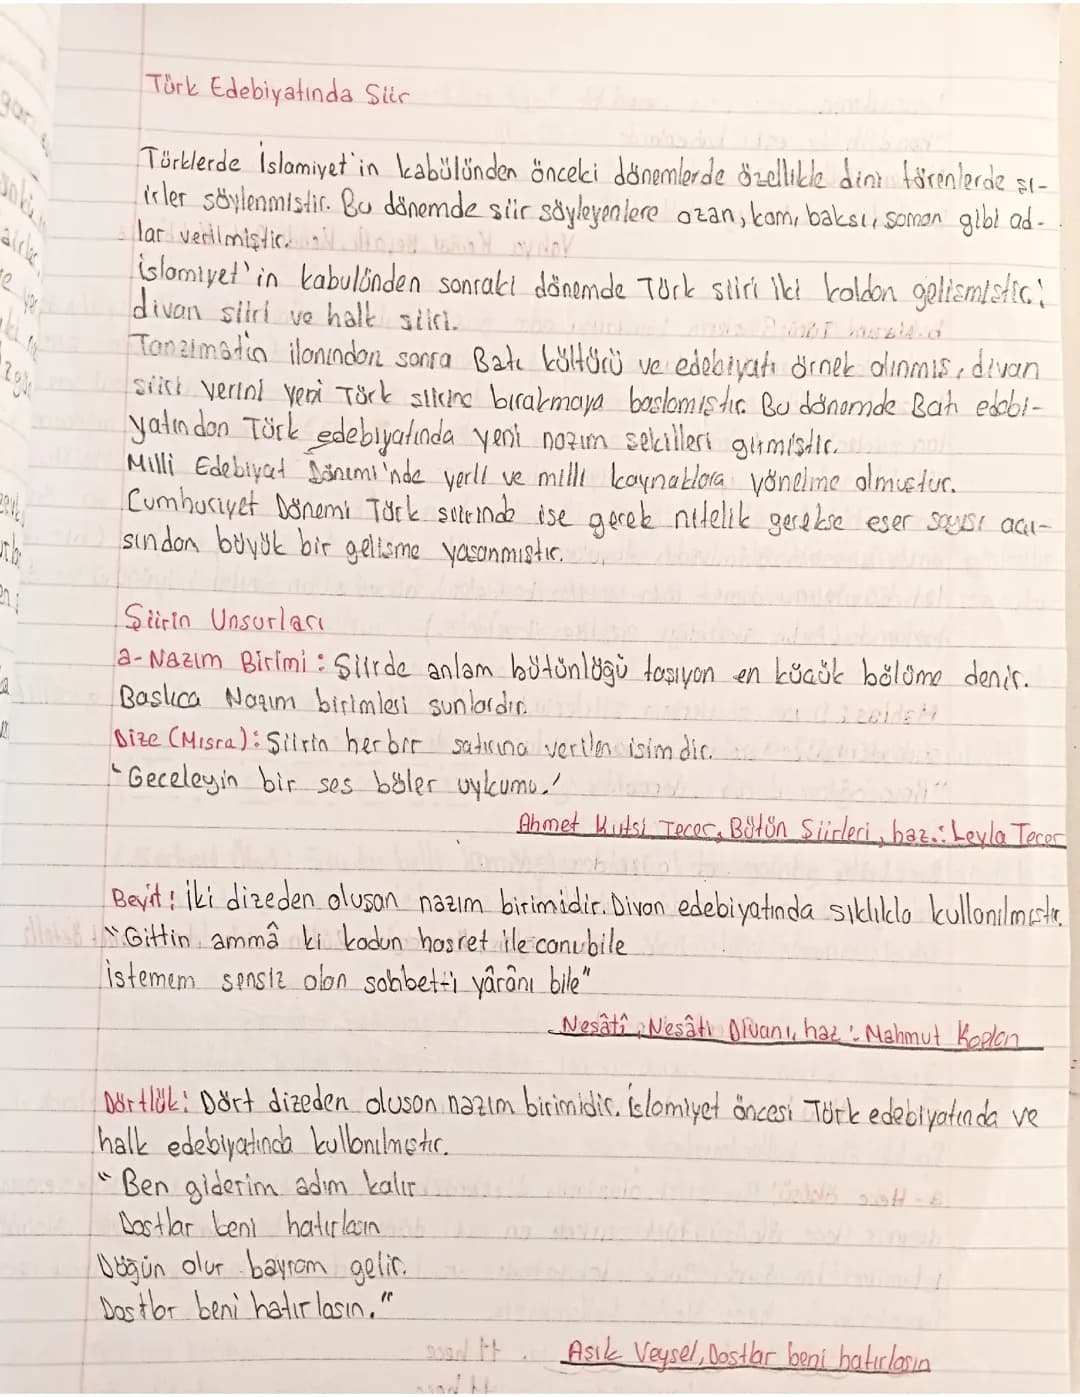 Türk Edebiyatında Şiir
Türklerde İslamiyet'in kabülünden önceki dönemlerde özellikle dini törenlerde şi-
irler söylenmiştir. Bu dönemde şiir söyleyenlere ozan, kam, baksı, şaman gibi ad-
lar verilmiştir.
İslamiyet'in kabulünden sonraki dönemde Türk şiiri iki koldan gelişmiştir:
divan şiiri ve halk şiiri.
Tanzimatın ilanından sonra Batı kültürü ve edebiyatı örnek alınmış, divan
şiiri yerini yeni Türk şiirine bırakmaya başlamıştır. Bu dönemde Batı edebi-
yatından Türk edebiyatında yeni nazım şekilleri girmiştir.
Milli Edebiyat Dönemi'nde yerli ve milli kaynaklara yönelme olmuştur.
Cumhuriyet Dönemi Türk şiirinde ise gerek nitelik gerekse eser sayısı açı-
sından büyük bir gelişme yaşanmıştır.
Şiirin Unsurları
a- Nazım Birimi: Şiirde anlam bütünlüğü taşıyan en küçük bölüme denir.
Başlıca Nazım birimleri şunlardır.
Dize (Mısra): Şiirin herbir satırına verilen isimdir.
"Geceleyin bir ses böler uykumu."
Ahmet Kutsi Tecer, Bütün Şiirleri, haz.: Leyla Tecer
Beyit: İki dizeden oluşan nazım birimidir. Divan edebiyatında sıklıkla kullanılmıştır.
"Gittin ammâ ki kodun hasret ile canı bile
İstemem sensiz olan sohbet-i yârânı bile"
Neşâtî, Neşâtî Divanı, haz: Mahmut Kaplan
Dörtlük: Dört dizeden oluşan nazım birimidir. İslamiyet öncesi Türk edebiyatında ve
halk edebiyatında kullanılmıştır.
"Ben giderim adım kalır
Dostlar beni hatırlasın
Düğün olur bayram gelir.
Dostlar beni hatırlasın."
Aşık Veysel, Dostlar beni hatırlasın